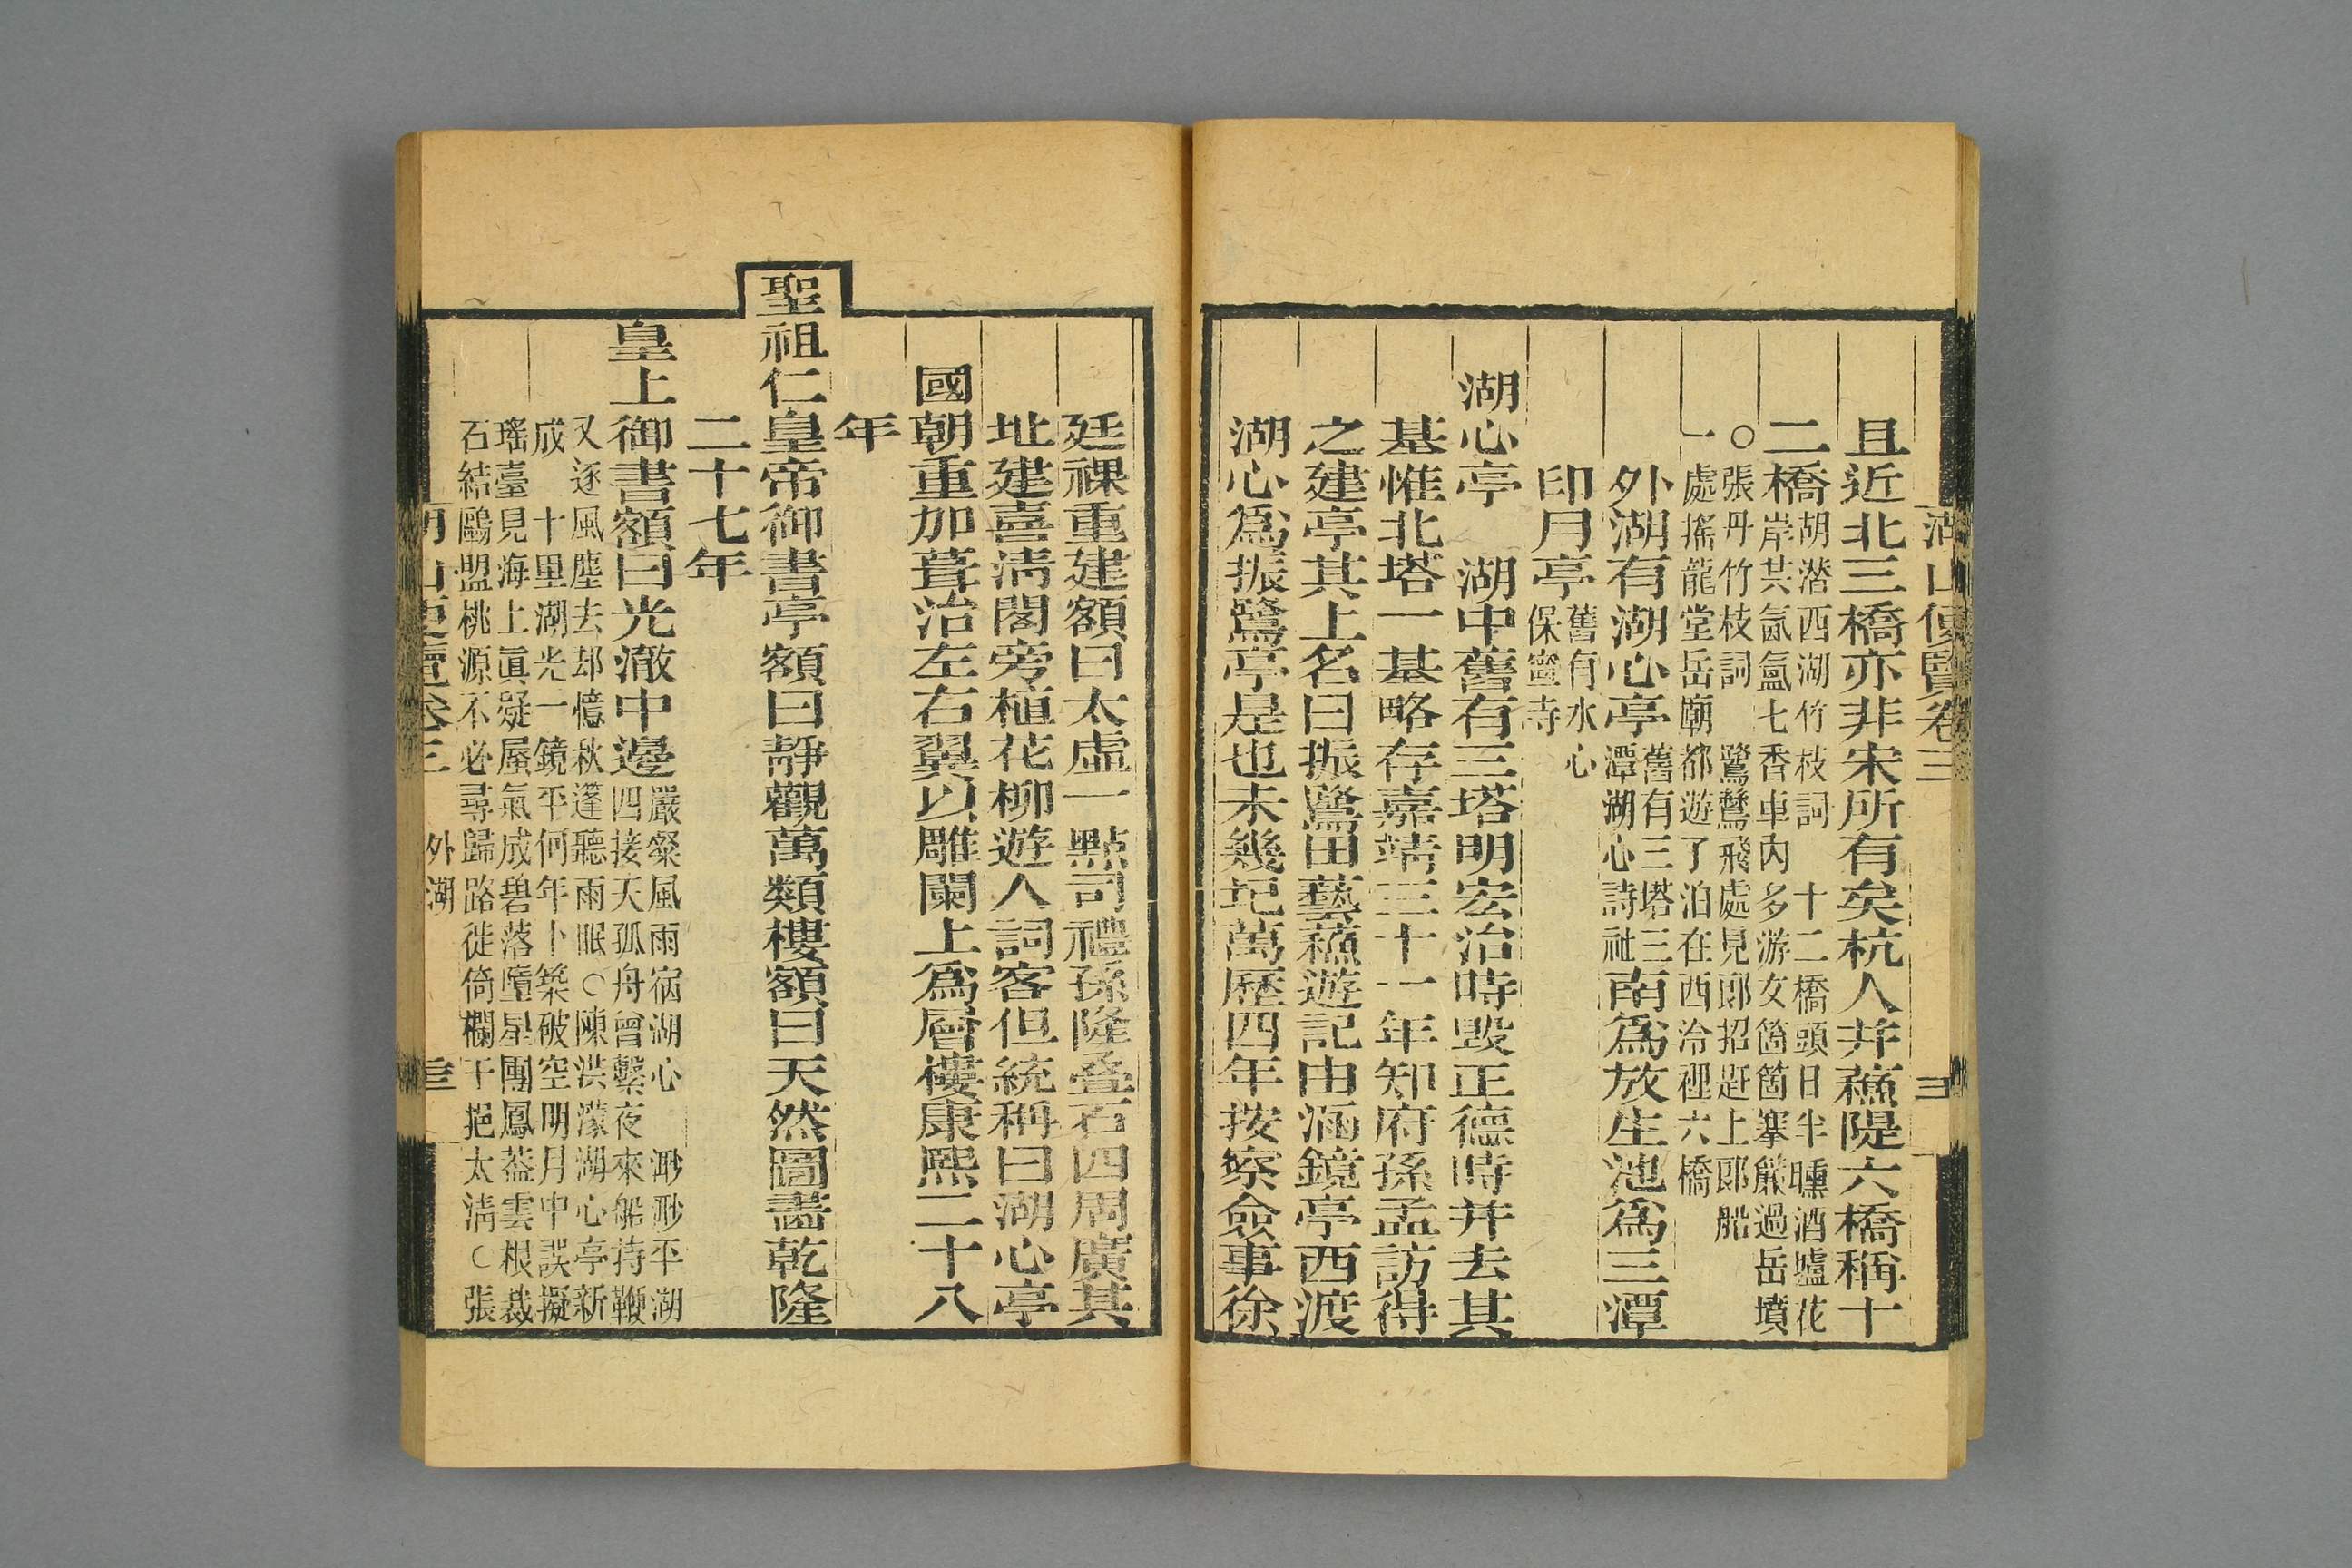 湖山便覽卷三
且近北三橋亦非宋所有矣杭人并蘇隄六橋稱十
二橋
胡潛西湖竹枝詞　十二橋頭日半曛酒壚花
岸共氤氳七香車內多游女箇箇搴簾過岳墳
○張丹竹枝詞　鷺鷥飛處見郎招趕上郎船
一處搖龍堂岳廟都遊了泊在西泠裡六橋
外湖有湖心亭
舊有三塔三
潭湖心詩社
南爲放生池爲三潭
印月亭
舊有水心
保寧寺
湖心亭　湖中舊有三塔明宏治時毀正德時并去其
基惟北塔一基略存嘉靖三十一年知府孫孟訪得
之建亭其上名曰振鷺田藝蘅遊記由涵鏡亭西渡
湖心爲振鷺亭是也未幾圮萬歷四年按察僉事徐
廷祼重建額曰太虛一點司禮孫隆叠石四周廣其
址建喜清閣旁植花柳遊人詞客但統稱曰湖心亭
國朝重加葺治左右翼以雕闌上爲層樓康熙二十八
年
聖祖仁皇帝御書亭額曰靜觀萬類樓額曰天然圖畵乾隆
二十七年
皇上御書額曰光澈中邊
嚴粲風雨宿湖心　渺渺平湖
四接天孤舟曾繫夜來船持鞭
又逐風塵去却憶秋篷聽雨眠○陳洪濛湖心亭新
成　十里湖光一鏡平何年卜築破空明月中誤擬
瑤臺見海上眞疑蜃氣成碧落墮星團鳳葢雲根裁
石結鷗盟桃源不必尋歸路徙倚欄干挹太淸○張
外湖